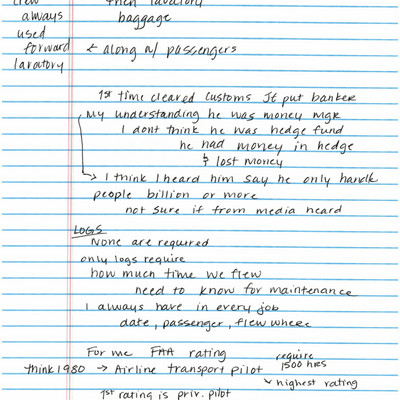 crew then lavatory
always baggage
used
forward ← along w/ passengers
lavatory
1st time cleared customs JE put banker
My understanding he was money mgr
I dont think he was hedge fund
he had money in hedge
& lost money
→ I think I heard him say he only handle
people billion or more
not sure if from media heard
LOGS
None are required
only logs require
how much time we flew
need to know for maintenance
I always have in every job
date, passenger, flew where
For me FAA rating
think 1980 → Airline transport pilot
require
1500 hrs
highest rating
1st rating is priv. pilot